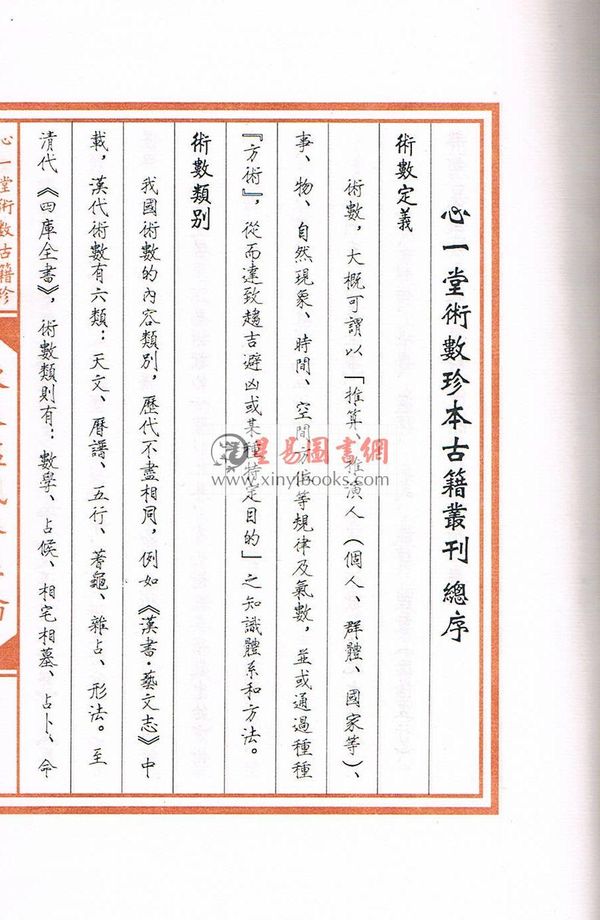 心一堂術數珍本古籍叢刊 總序
術數定義
術數，大概可謂以「推算、推演人（個人、群體、國家等）、
事、物、自然現象、時間、空間方位等規律及氣數，並或通過種種
『方術』，從而達致趨吉避凶或某種特定目的」之知識體系和方法。
術數類別
我國術數的內容類別，歷代不盡相同，例如《漢書·藝文志》中
載，漢代術數有六類：天文、曆譜、五行、蓍龜、雜占、形法。至
清代《四庫全書》，術數類則有：數學、占候、相宅相墓、占卜、命
心一堂術數古籍珍
星易圖書網
www.xinyibooks.com